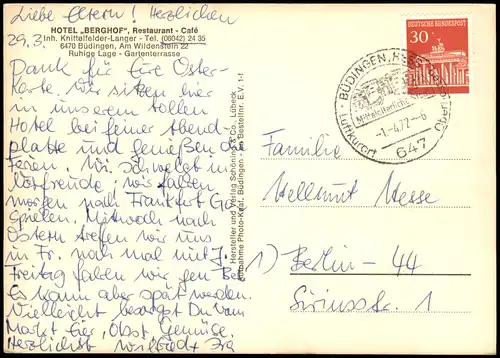 Liebe Eltern! Herzlichen
HOTEL „BERGHOF", Restaurant - Café
29.3.
Inh. Knittelfelder-Langer - Tel. (06042) 24 35
6470 Büdingen, Am Wildenstein 22
Ruhige Lage - Gartenterrasse
Dank für Eire Oster-
karte. Wir sitzen hier
in unserem tollen
Hotel bei feiner Abend-
platte und genießen die
Ferien. Wi. schwelgt in
Vorfreude, wir fahren
morgen nach Frankfurt
spielen. Mittwoch nach
Ostern treffen wir uns
in Fr. noch mal mit J.
Freitag fahren wir gen Be.
Es kann aber spät werden.
Vielleicht besorgst Du vom
Markt Eier, Obst, Gemüse.
Herzlichst Wilfried +
Hersteller und Verlag Schöning & Co., Lübeck
Aufnahme Photo-Kraf, Büdingen - an Bestellnr. E.V. 1-1
DEUTSCHE BUNDESPOST
30
BÜDINGEN, HESS
Mittelalterliche
-1.4.72-6
Luftkurort
647
Familie
Hellmut Hesse
1) Berlin - 44
Siriusstr. 1